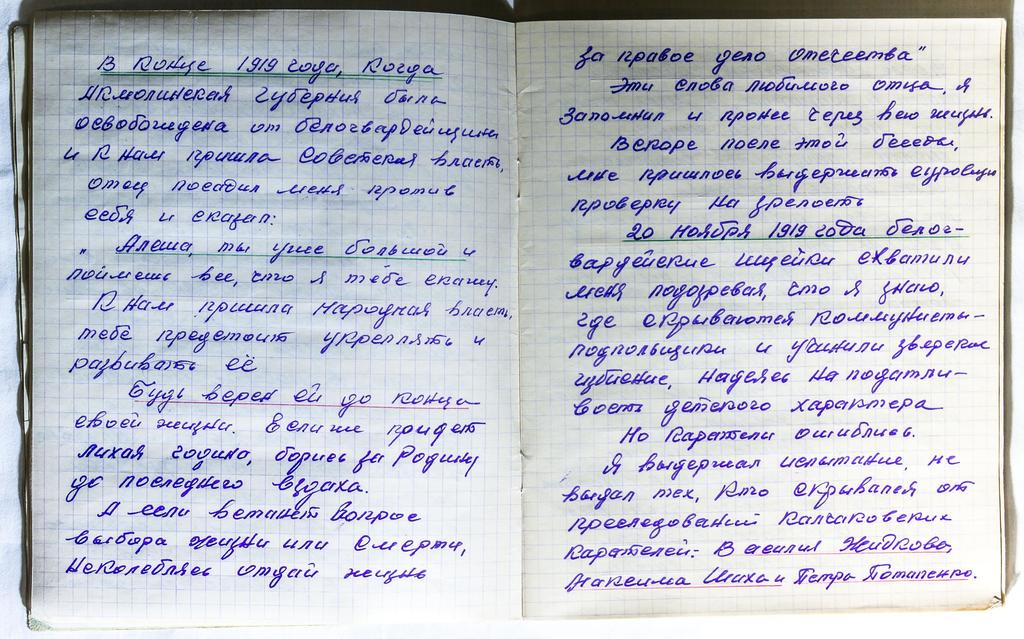 В конце 1919 года, когда
Акмолинская губерния была
освобождена от белогвардейщины
и к нам пришла Советская власть,
отец посадил меня против
себя и сказал:
„ Алеша, ты уже большой и
поймешь все, что я тебе скажу.
К нам пришла народная власть,
тебе предстоит укреплять и
развивать её
Будь верен ей до конца
своей жизни. Если же придет
лихая година, борись за Родину
до последнего вздаха.
А если встанет вопрос
выбора жизни или смерти,
неколеблясь отдай жизнь
за правое дело отечества"
Эти слова любимого отца, я
запомнил и пронес через всю жизнь.
Вскоре после этой беседы,
мне пришлось выдержать суровую
проверку на зрелость
20 ноября 1919 года белог-
вардейские ищейки схватили
меня подозревая, что я знаю,
где скрываются коммунисты-
подпольщики и учинили зверское
избиение, надеясь на податли-
вость детского характера
Но каратели ошиблись.
Я выдержал испытание, не
выдал тех, кто скрывался от
преследований колчаковских
карателей: Василия Жидкова,
Максима Шаха и Петра Потапенко.